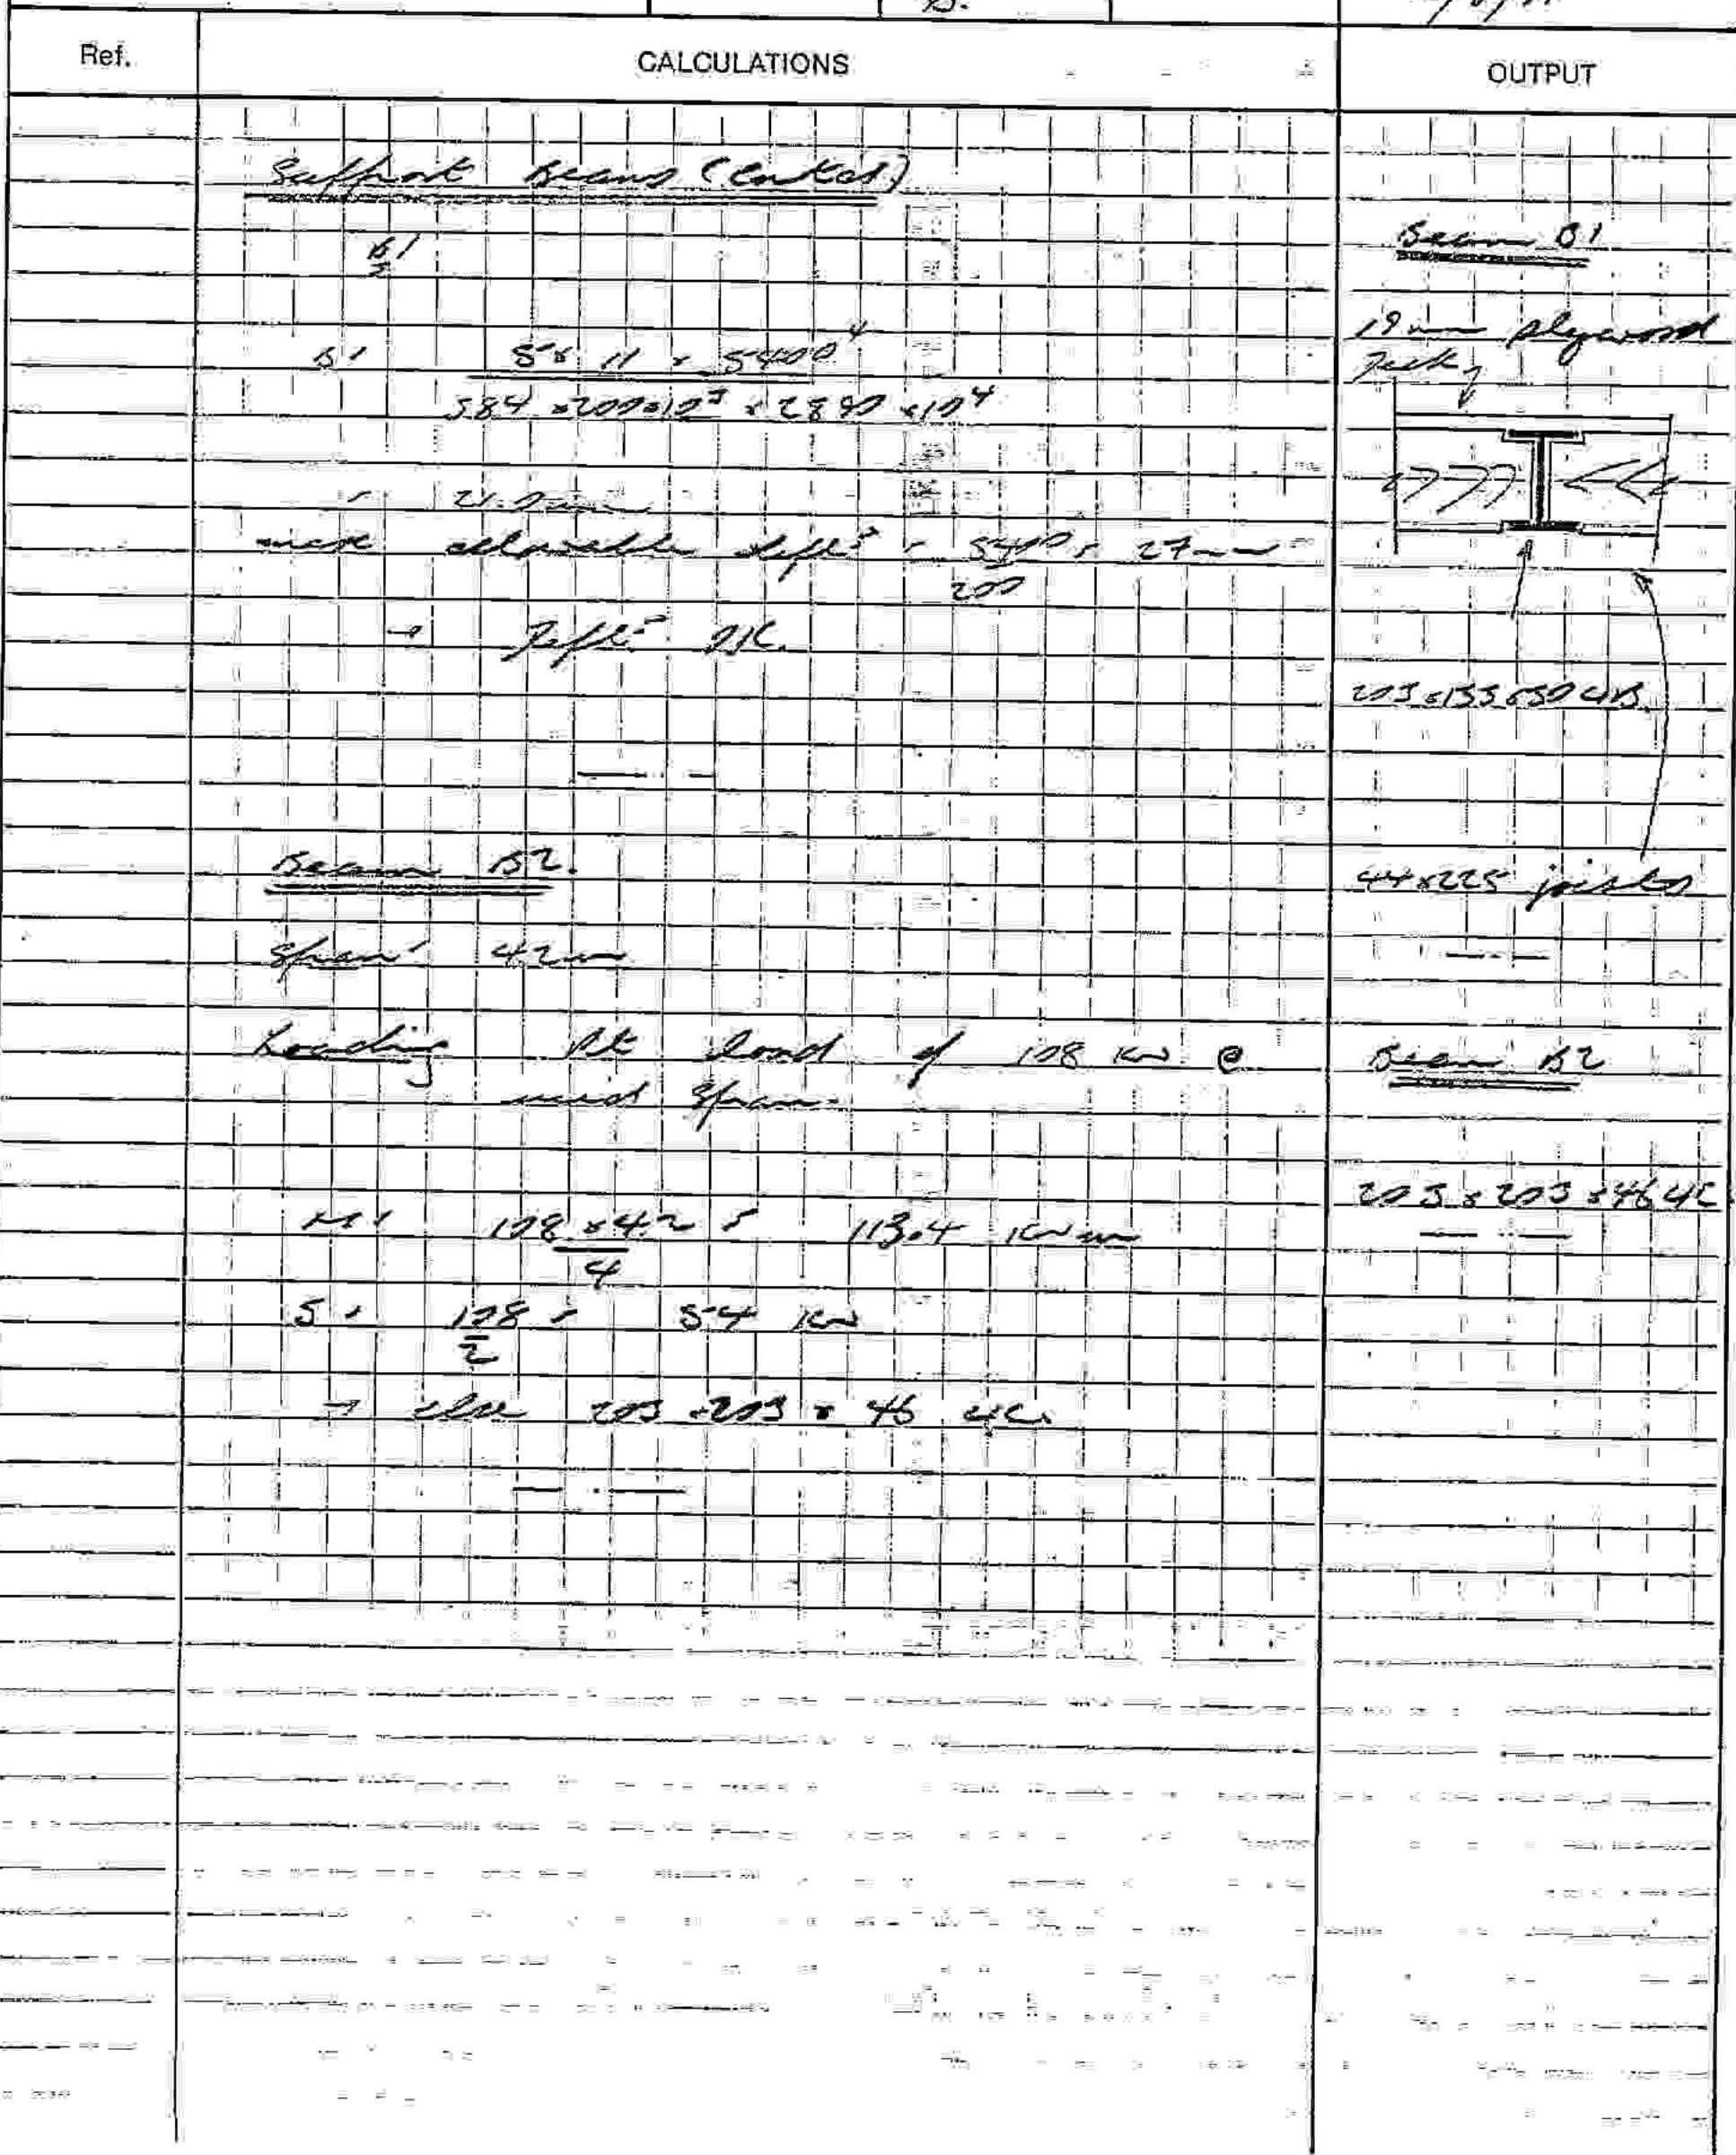 Ref.
CALCULATIONS
OUTPUT
Support Beams (Contd)
B1
5 x 11 x 5400⁴
384 x 200x10³ x 2890 x10⁴
max allowable deflⁿ = 5400 = 27mm
200
→ Deflⁿ OK.
Beam B2.
Span = 4.2m
Loading Pt load of 108 KN @
mid Span.
M = 108 x 4.2 = 113.4 KNm
4
S = 108 = 54 KN
2
→ Use 203 x 203 x 46 UC.
Beam B1
19mm plywood
203x133x30 UB.
44x225 joists
Beam B2
203 x 203 x 46 UC